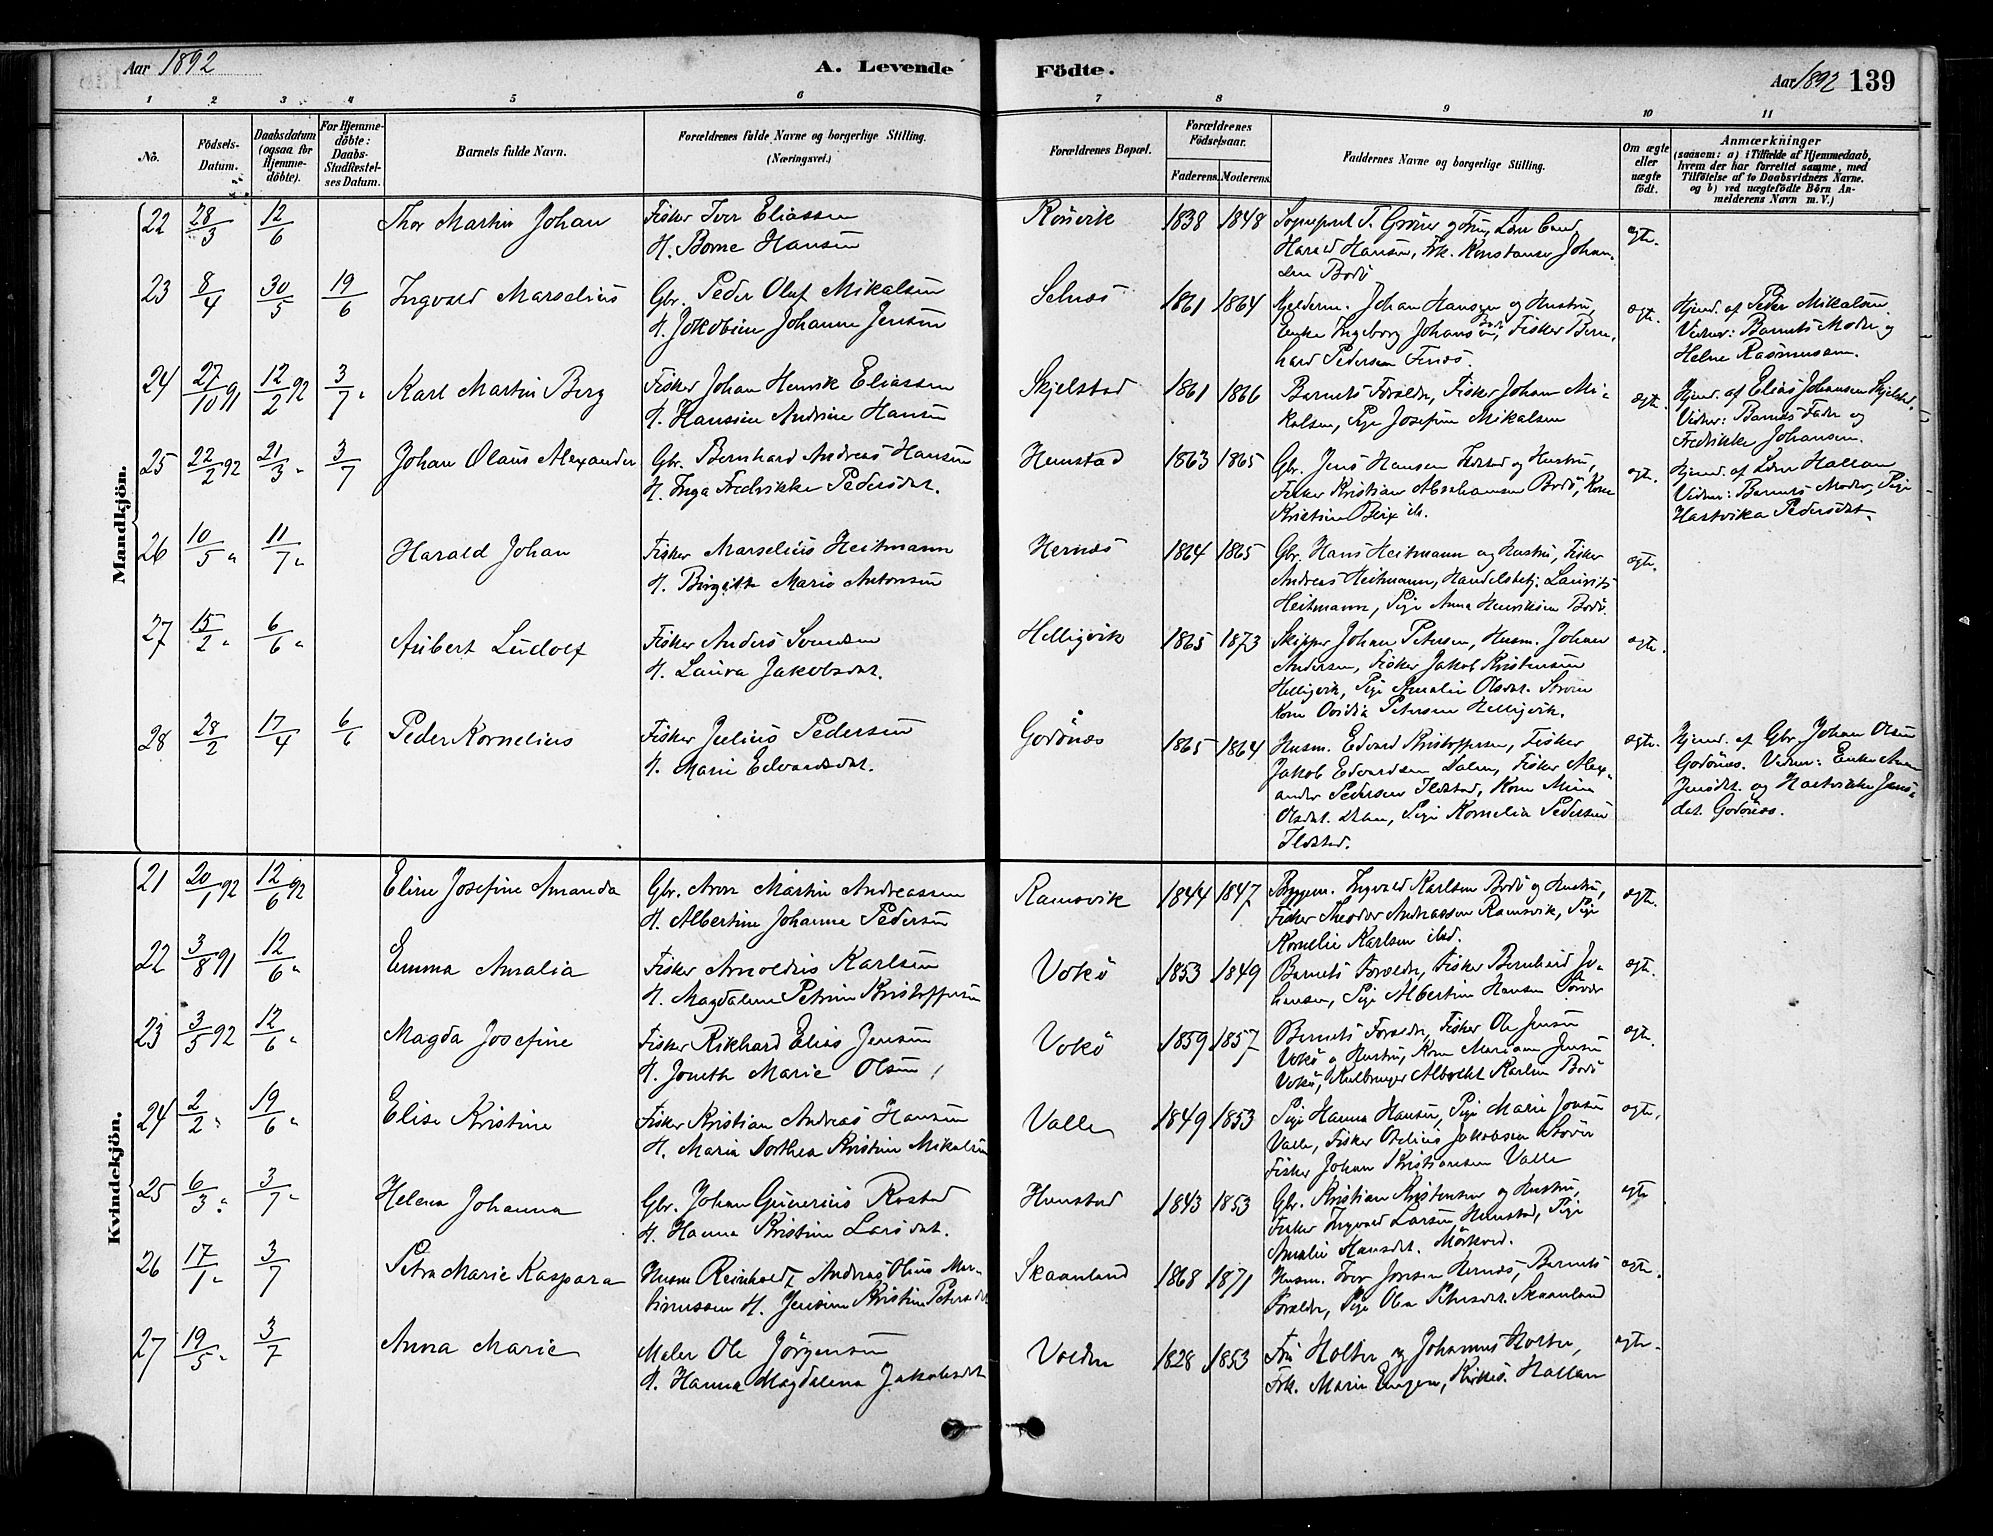 Aar 1892
A. Levende
1 2 3 4 5 6
No.
Födsels-
Datum.
Daabsdatum
(ogsaa for
Hjemme-
döbte).
For Hjemme-
döbte:
Daabs-
Stadfæstel-
ses Datum.
Barnets fulde Navn.
Forældrenes fulde Navne og borgerlige Stilling.
(Næringsvei.)
Mandkjön.
22 28/3 12/6 Thor Martin Johan Fisker Iver Eliassen
H. Borne Hansen
23 8/4 30/5 19/6 Ingvald Marselius Gbr. Peder Oluf Mikalsen
H. Jakobine Johanne Jensen
24 27/10 91 12/2 92 3/7 " Karl Martin Berg Fisker Johan Henrik Eliassen
H. Hansine Andrine Hansen
25 22/2 92 21/3 " 3/7 Johan Olaus Alexander Gbr. Bernhard Andreas Hansen
H. Inga Fredrikke Pedersdat.
26 10/5 " 11/7 " Harald Johan Fisker Marselius Heitmann
H. Birgitte Marie Antonsen
27 15/2 " 6/6 " Aubert Ludolf Fisker Anders Svendsen
H. Laura Jakobsdat.
28 28/2 17/4 6/6 Peder Kornelius Fisker Julius Pedersen
H. Marie Edvardsdat.
Kvindekjön.
21 20/1 92 12/6 92 Eline Josefine Amanda Gbr. Aron Martin Andreassen
H. Albertine Johanne Pedersen
22 3/8 91 12/6 " Emma Amalia Fisker Arnoldus Karlsen
H. Magdalena Petrine Kristoffersen
23 3/5 92 12/6 " Magda Josefine Fisker Rikhard Elias Jensen
H. Joneth Marie Olsen
24 2/2 " 19/6 " Elise Kristine Fisker Kristian Andreas Hansen
H. Maria Dorthea Kristine Mikalsen
25 6/3 " 3/7 " Helena Johanna Gbr. Johan Gunerius Rostad
H. Hanna Kristine Larsdat.
26 17/1 " 3/7 Petra Marie Kaspara Husm. Reinholdt Andreas Olaus Mar-
tinussen H. Jensine Kristine Petersdat
27 19/5 " 3/7 Anna Marie Maler Ole Jörgensen
H. Hanna Magdalena Jakobsdat
Födte.
Aar 1892 139
7 8 9 10 11
Forældrenes Bopæl.
Forældrenes
Födselsaar.
Faderens. Moderens.
Faddernes Navne og borgerlige Stilling.
Om ægte
eller
uægte
födt.
Anmærkninger
(saasom: a) i Tilfælde af Hjemmedaab,
hvem der har forrettet samme, med
Tilföielse af to Daabsvidners Navne.
og b) ved uægtefödte Börn An-
melderens Navn m. V.)
Rönvik 1838 1848 Sogneprest T. Gröner og Frue,
Harald Hansen, Frk. Konstanse Johan-
sen Bodö ægte.
Selnæs 1861 1864 Johan Hansen og Hustru,
Enke Ingeborg Johansen Bodö, Fisker Bern-
hard Pedersen ægte. Hjemd. af Peder Mikalsen.
Vidner: Barnets Moder og
Helne Rasmussen.
Skjelstad 1861 1866 Barnets Forældre, Fisker Johan Mi-
kalsen, Pige Josefine Mikalsen ægte. Hjemd. af Elias Johansen Skjelstad.
Vidner: Barnets Fader og
Fredrikke Johansen.
Hunstad 1863 1865 Gbr. Jens Hansen Ildstad og Hustru,
Fisker Kristian Abrahamsen Bodö, Kone
Kristine Blix ib. ægte. Hjemd. af Hallan
Vidner: Barnets Moder, Pige
Hartvika Pedersdat.
Hernæs 1864 1865 Gbr. Hans Heitmann og Hustru, Fisker
Andreas Heitmann, Handelsbetj. Laurits
Heitmann, Pige Anna Henriksen Bodö. ægte.
Helligvik 1865 1873 Skipper Johan Petersen, Husm. Johan
Andersen, Fisker Jakob Kristensen
Helligvik, Pige Amalie Olsdat. Ström
Kone Ovidia Petersen Helligvik. ægte.
Godönæs 1865 1864 Husm. Edvard Kristoffersen, Fisker
Jakob Edvardsen Dalen, Fisker Alex-
ander Pedersen Ildstad, Kone Mina
Olsdat. Dalen, Pige Kornelia Pedersen
Ildstad. ægte. Hjemd. af Gbr. Johan Olsen
Godönæs. Vidner: Enke
Jensdat. og Hartvikke Jens-
dat. Godönæs.
Ramsvik 1844 1847 Byggm. Ingvald Karlsen Bodö og Hustru,
Fisker Theodor Andreassen Ramsvik, Pige
Kornelie Karlsen ibd. ægte.
Vokö 1853 1849 Barnets Forældre, Fisker Bernhard Jo-
hansen, Pige Albertine Hansen ægte.
Vokö 1859 1857 Barnets Forældre, Fisker Ole Jensen
Vokö og Hustru, Kone Mariann Jensen
Vokö, Albrecht Karlsen Bodö ægte.
Valle 1849 1853 Pige Hanna Hansen, Pige Marie Jonsen
Valle, Fisker Jakobsen Støver
Fisker Johan Kristiansen Valle ægte.
Hunstad 1843 1853 Gbr. Kristian Kristensen og Hustru,
Fisker Ingvald Larsen Hunstad, Pige
Amalie Hansdat. Mörkved. ægte
Skaanland 1868 1871 Husm. Iver Jonsen Hernæs, Barnets
Forældre, Pige Olea Petersdat. Skaanland ægte.
Volden 1828 1853 Fru Holter og Johannes Holter,
Frk. Marie Engen, Hallan ægte.